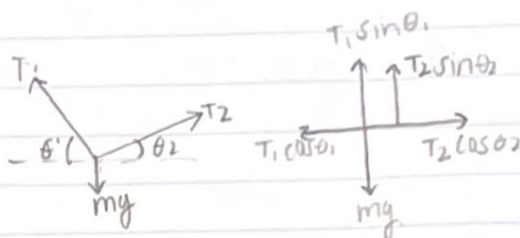 T₁
T2
θ'
θ2
mg
T₁ sinθ₁
T2 sinθ2
T₁ cosθ₁
T2 cosθ2
mg